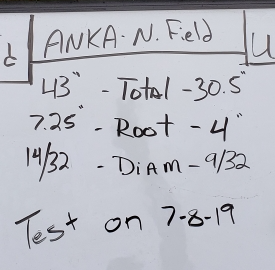 ANKA· N. Field
43" - Total - 30.5"
7.25" - Root - 4"
14/32 - Diam - 9/32
Test on 7-8-19